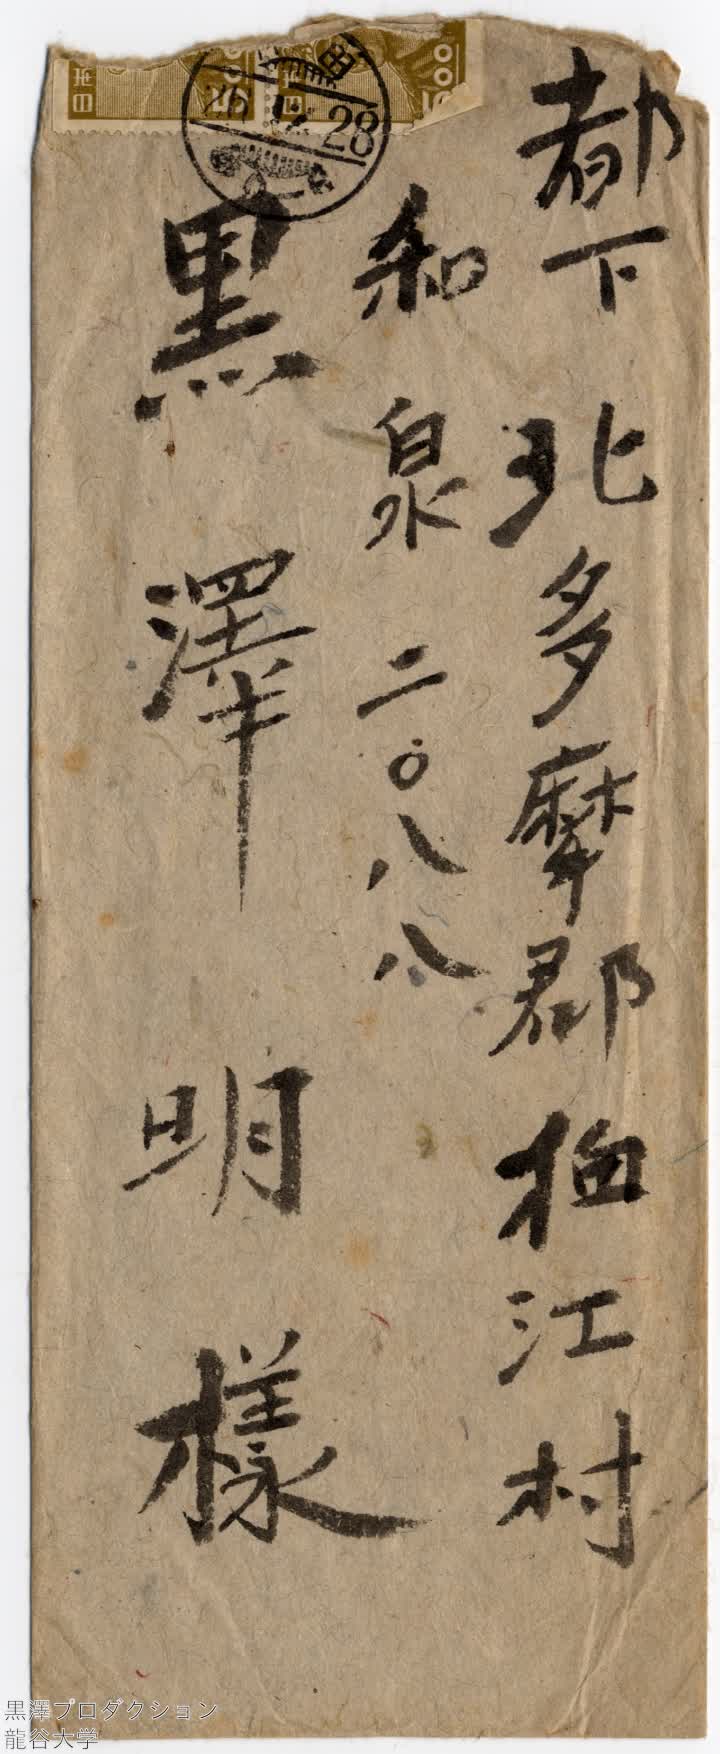 都下北多摩郡狛江村
和泉二〇八八
黒澤明様
26.12.28
黒澤プロダクション
龍谷大学